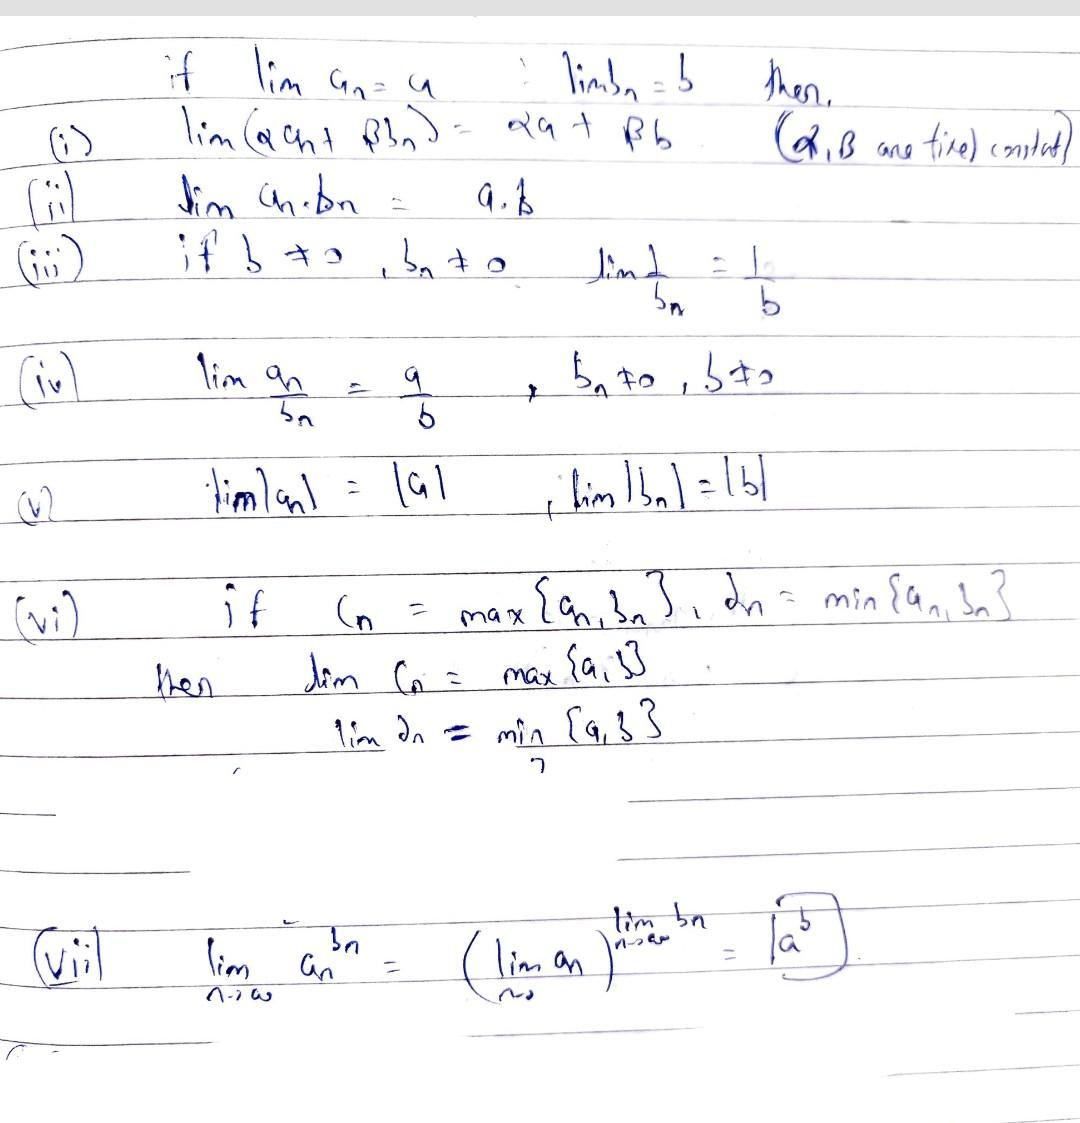 if lim aₙ = a ; lim bₙ = b then,
(i) lim (αaₙ + βbₙ) = αa + βb (α, β are fixed constant)
(ii) lim aₙ.bₙ = a.b
(iii) if b ≠ 0, bₙ ≠ 0 lim 1/bₙ = 1/b
(iv) lim aₙ/bₙ = a/b , bₙ ≠ 0, b ≠ 0
(v) lim |aₙ| = |a| , lim |bₙ| = |b|
(vi) if Cₙ = max {aₙ, bₙ}, dₙ = min {aₙ, bₙ}
then lim Cₙ = max {a, b}
lim dₙ = min {a, b}
(vii) lim n→∞ aₙ^bₙ = (lim aₙ)^(lim n→∞ bₙ) = a^b